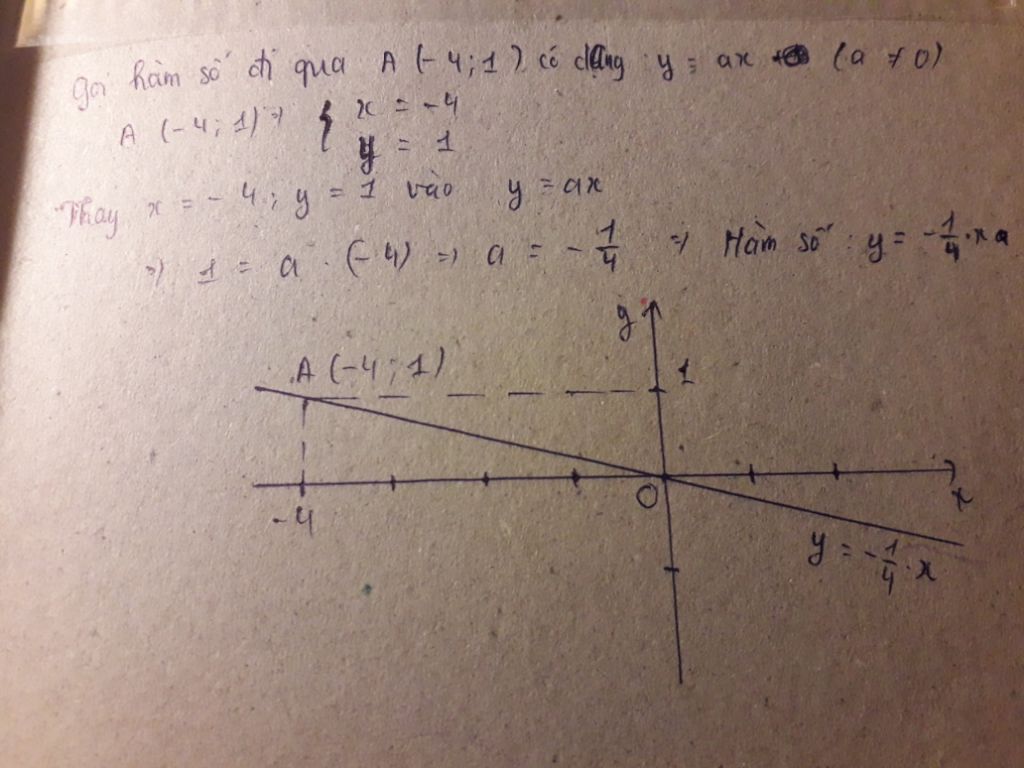 Gọi hàm số đi qua A (-4; 1) có dạng : y = ax (a ≠ 0)
A (-4; 1) => { x = -4
y = 1
Thay x = -4; y = 1 vào y = ax
=> 1 = a . (-4) => a = -1/4 => Hàm số : y = -1/4 . x
y
A (-4; 1)
1
O
x
-4
y = -1/4 . x